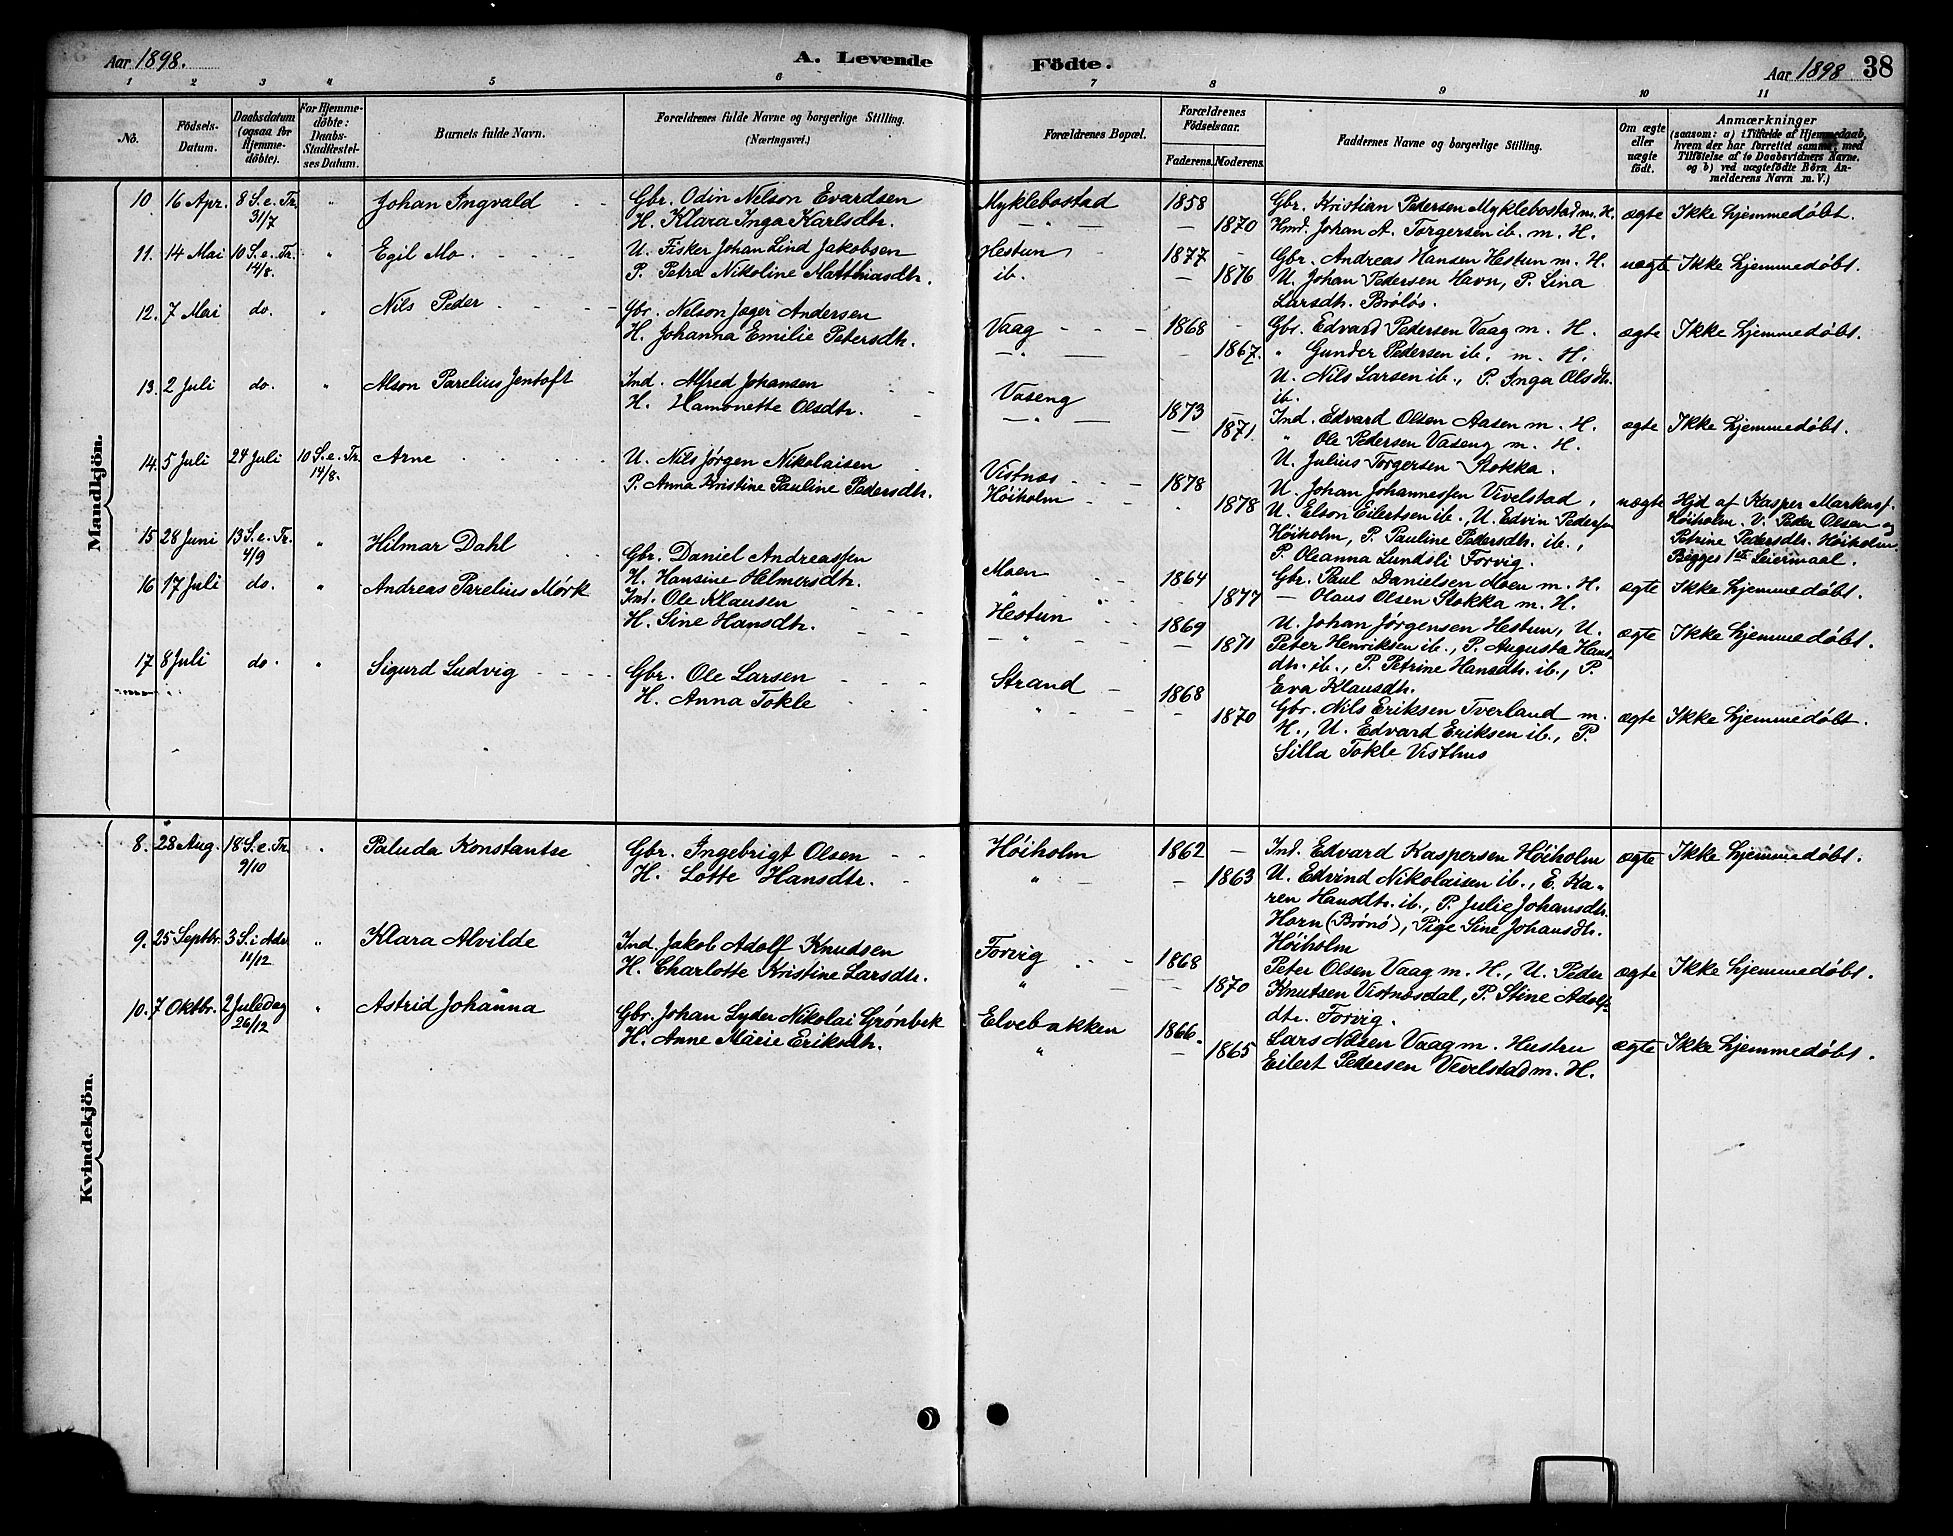 Aar 1898.
A. Levende Födte.
Aar 1898 38
1 2 3 4 5 6 7 8 9 10 11
No.
Födsels-Datum.
Daabsdatum (ogsaa for Hjemme-döbte).
For Hjemme-döbte: Daabs-Stadfæstel-ses Datum.
Barnets fulde Navn.
Forældrenes fulde Navne og borgerlige Stilling. (Næringsvei.)
Forældrenes Bopæl.
Forældrenes Födselsaar.
Faderens. Moderens.
Faddernes Navne og borgerlige Stilling.
Om ægte eller uægte födt.
Anmærkninger (saasom: a) i Tilfælde af Hjemmedaab, hvem der har forrettet samme, med Tilföielse af to Daabsvidners Navne, og b) ved uægtefödte Börn An-melderens Navn m. V.)
Mandkjön.
10. 16 Apr. 8 S. e. Tr. 31/7 " Johan Ingvald
Gbr. Odin Nelson Evardsen
H. Klara Inga Karlsdtr.
Myklebostad 1858 1870
Gbr. Kristian Pedersen Myklebostad m. H.
Hmd. Johan A. Torgersen ib. m. H.
ægte Ikke hjemmedøbt.
11. 14 Mai 10 S. e. Tr. 14/8. " Egil Mo
U. Fisker Johan Lind Jakobsen
P. Petra Nikoline Matthiasdtr.
Hestun ib. 1877 1876
Gbr. Andreas Hansen Hestun m. H.
U. Johan Pedersen Havn, P. Lina
Larsdtr. Brøløs.
uægte Ikke hjemmedøbt.
12. 7 Mai do. " Nils Peder
Gbr. Nelson Jæger Andersen
H. Johanna Emilie Petersdtr.
Vaag 1868 1867.
Gbr. Edvard Pedersen Vaag m. H.
" Gunder Pedersen ib. m. H.
U. Nils Larsen ib., P. Inga Olsdtr.
ib.
ægte Ikke hjemmedøbt.
13. 2 Juli do. " Alson Parelius Jentoft
Ind. Alfred Johansen
H. Hamonette Olsdtr.
Vaseng 1873 1871.
Ind. Edvard Olsen Aasen m. H.
" Ole Pedersen Vaseng m. H.
U. Julius Torgersen Stokka.
ægte Ikke hjemmedøbt.
14. 5 Juli 24 Juli 10 S. e. Tr. 14/8. Arne
U. Nils Jørgen Nikolaisen
P. Anna Kristine Pauline Pedersdtr.
Vistnæs
Høiholm 1878 1878
U. Johan Johannessen Vivelstad,
U. Elson Eilertsen ib., U. Edvin Pedersen
Høiholm, P. Pauline Pedersdtr. ib.,
P. Oleanna Lundsli Forvig.
uægte Hjd af Kasper Markusf.
Høiholm. V. Peder Olsen og
Petrine Pedersdtr. Høiholm.
Begges 1st Leiermaal.
15 28 Juni 13 S. e. Tr. 4/9 " Hilmar Dahl
Gbr. Daniel Andreassen
H. Hansine Helmersdtr.
Moen 1864 1877
Gbr. Paul Danielsen Moen m. H.
— Olaus Olsen Stokka m. H.
ægte Ikke hjemmedøbt.
16 17 Juli do. " Andreas Parelius Mørk
Ind. Ole Klausen
H. Sine Hansdtr.
Hestun 1869 1871
U. Johan Jørgensen Hestun, U.
Peter Henriksen ib., P. Augusta Hans-
dtr. ib., P. Petrine Hansdtr. ib., P.
Eva Klausdtr.
ægte Ikke hjemmedøbt.
17 8 Juli do. " Sigurd Ludvig
Gbr. Ole Larsen
H. Anna Tokle
Strand 1868 1870
Gbr. Nils Eriksen Tverland m.
H., U. Edvard Eriksen ib., P.
Silla Tokle Visthus
ægte Ikke hjemmedøbt.
Kvindekjön.
8. 28 Aug. 18 S. e. Tr. 9/10 " Paluda Konstantse
Gbr. Ingebrigt Olsen
H. Lotte Hansdtr.
Høiholm 1862 1863
Ind. Edvard Kaspersen Høiholm
U. Edvind Nikolaisen ib., E. Ka-
ren Hansdtr. ib., P. Julie Johansdtr.
Horn (Brønø), Pige Sine Johansdtr.
Høiholm
ægte Ikke hjemmedøbt.
9. 25 Septbr. 3 S. i Adv. 11/12 " Klara Alvilde
Ind. Jakob Adolf Knudsen
H. Charlotte Kristine Larsdtr.
Forvig 1868 1870
Peter Olsen Vaag m. H., U. Peder
Knutsen Vistnesdal, P. Stine Adolfs-
dtr. Forvig.
ægte Ikke hjemmedøbt.
10. 7 Oktbr. 2 Juledag 26/12 " Astrid Johanna
Gbr. Johan Lyder Nikolai Grønbek
H. Anne Marie Eriksdtr.
Elvebakken 1866. 1865
Lars Nilsen Vaag m. Hustru
Eilert Pedersen Vevelstad m. H.
ægte Ikke hjemmedøbt.